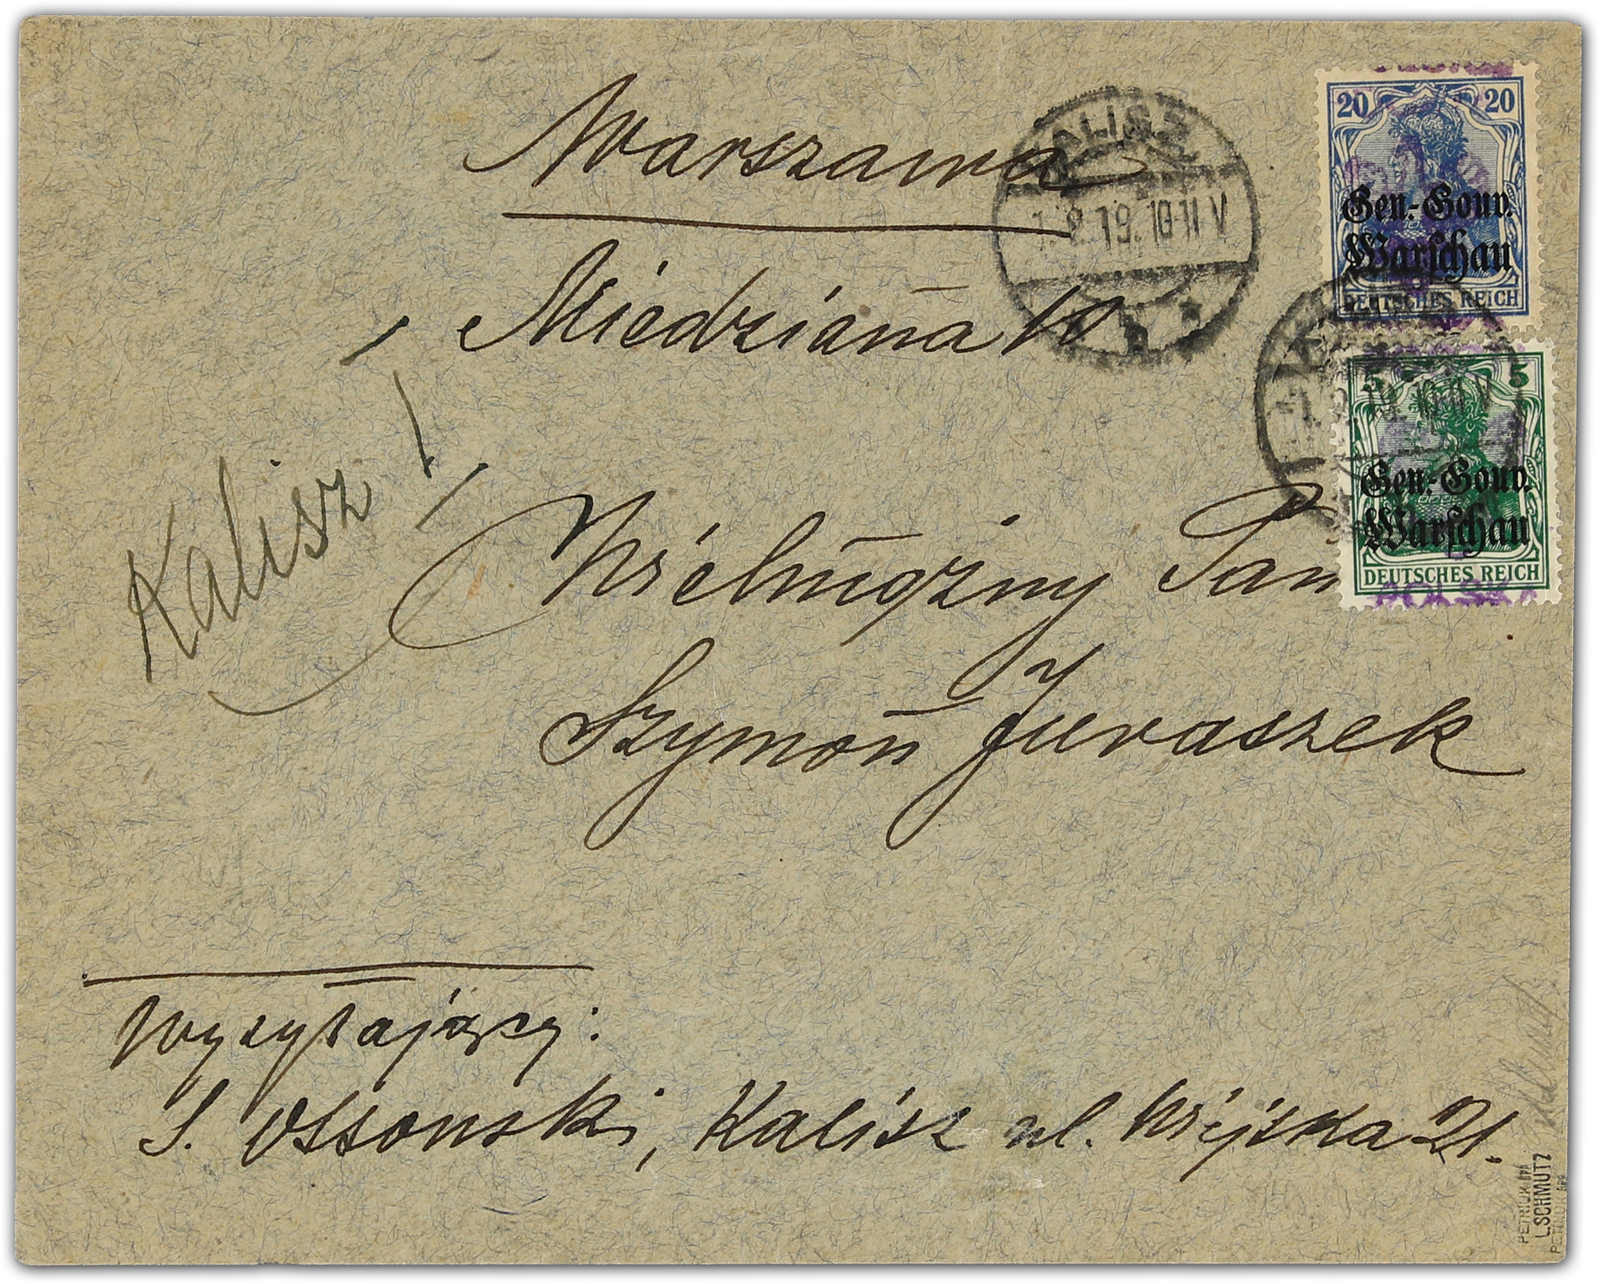 Warszawa
KALISZ
1.2.19. 10-11 V
Miedziana 10
20 20
Gen.-Gouv.
Warschau
DEUTSCHES REICH
5 5
Gen.-Gouv.
Warschau
DEUTSCHES REICH
Kalisz!
Wielmożny Pan
Szymon Juraszek
Wysyłający:
S. Ossowski, Kalisz ul. Wiejska 21.
L.SCHMUTZ